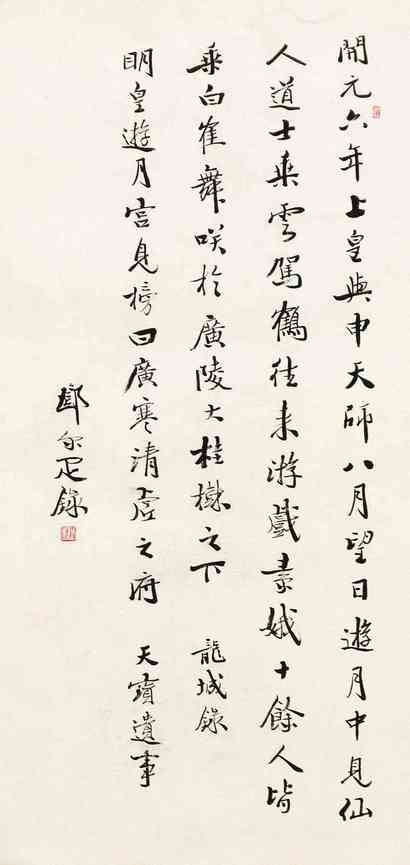 開元六年上皇與申天師八月望日遊月中見仙
人道士乘雲駕鶴往來游戲素娥十餘人皆
乘白雀舞咲於廣陵大桂樹之下 龍城錄
明皇遊月宮見榜曰廣寒清虛之府 天寶遺事
鄧尔疋錄